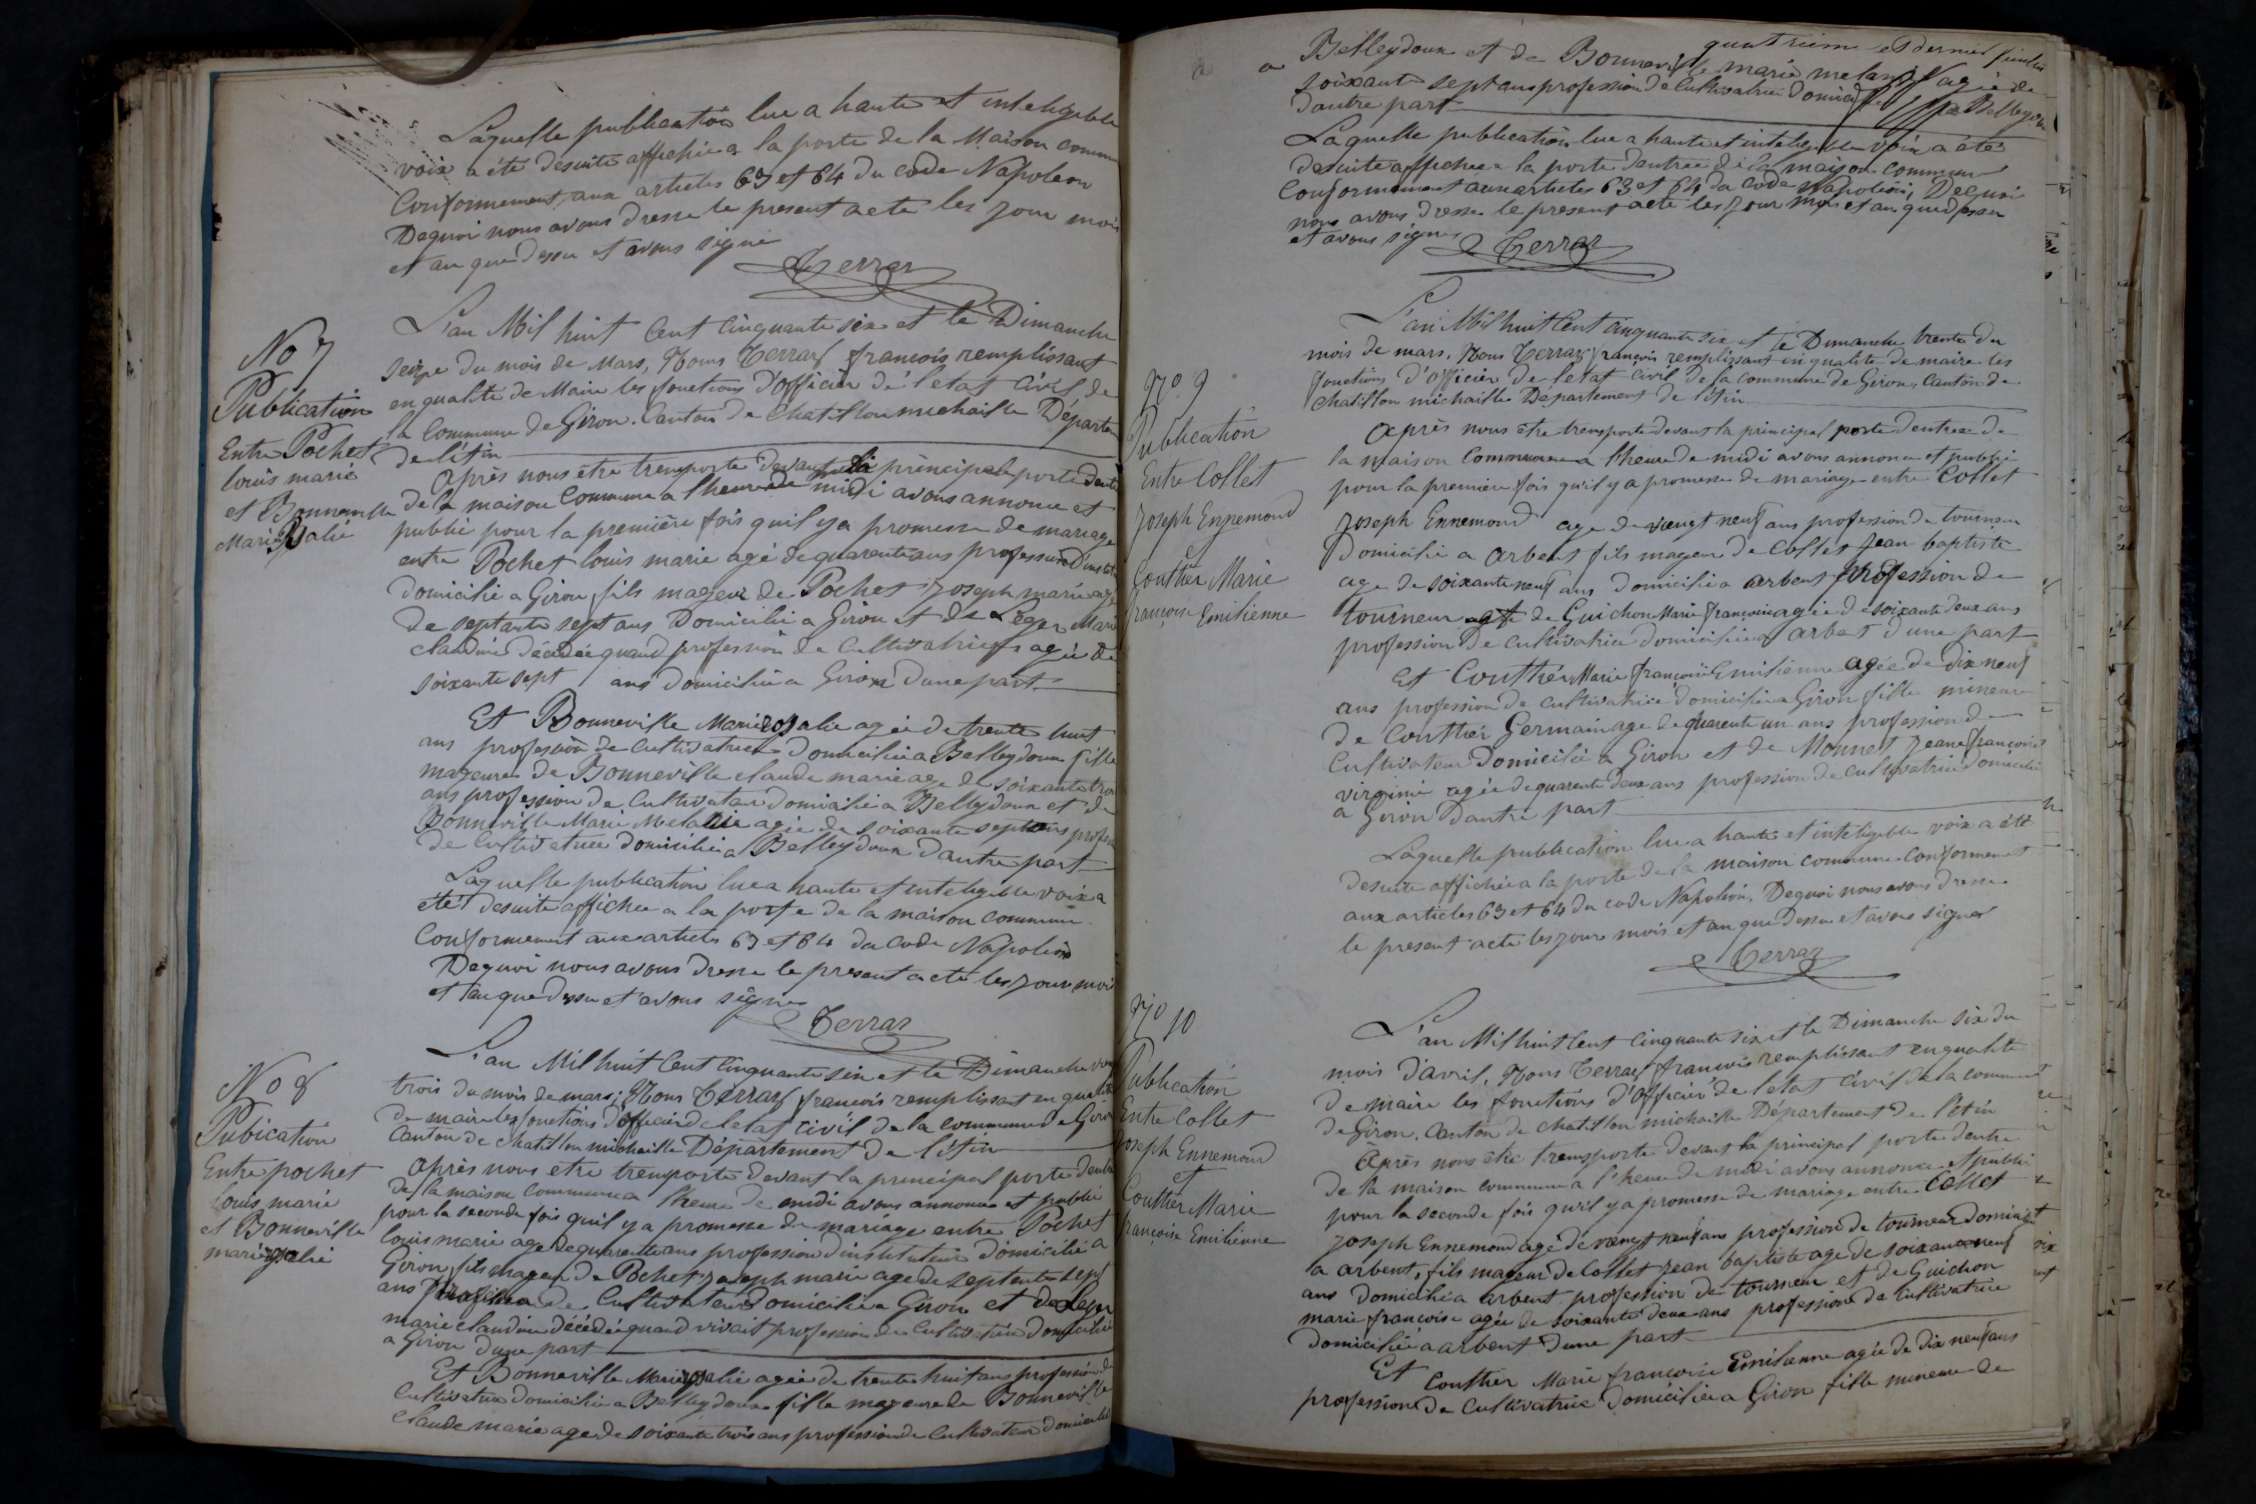 Laquelle publication lue a haute et inteligible
voix a été desuite affichée a la porte de la Maison commune
Conformement aux articles 63 et 64 du code Napoleon
Dequoi nous avons dresse le present acte les jour mois
et an que dessu et avons signé
Terraz
No 7
Publication
Entre Pochet
louis marie
et Bonneville
Marie Rosalie
L'an Mil huit Cent Cinquante six et le Dimanche
seize du mois de Mars, Nous Terraz françois remplissant
en qualité de Maire les fonctions d'officier de l'etat Civil de
la Commune de Giron. Canton de Chatillon michaille Départem
de l'Ain
Après nous être tremporte devant la principale porte dentre
de la maison Commune a l'heure de midi avons annonce et
publié pour la première fois quil ya promesse de mariage
entre Pochet louis marie agé de quarente ans profession d'instit
domicilié a Giron, fils mageur de Pochet Joseph marie age
de septante sept ans Domicilié a Giron et de Léger Marie
claudine décédée quand profession de Cultivatrice agée de
soixante sept ans domiciliée a Giron d'une part
Et Bonneville Marie rosalie agée de trente huit
ans profession de Cultivatrice domiciliée a Belleydoux fille
mageure de Bonneville claude marie age de soixante trois
ans profession de Cultivateur domicilié a Belleydoux et de
Bonneville Marie Melanie agée de soixante sept ans profess
de Cultivatrice domiciliée a Belleydoux d'autre part
Laquelle publication lue a haute et inteligible voix a
été desuite affichée a la porte de la maison commune
Conformement aux articles 63 et 64 du Code Napoléon
Dequoi nous avons dresse le present acte les jour mois
et an que dessu et avons signé
Terraz
No 8
Pubication
Entre pochet
louis marie
et Bonneville
marie rosalie
L'an Mil huit Cent Cinquante six et le Dimanche vingt
trois du mois de mars, Nous Terraz françois remplissant en qualité
de maire les fonctions d'officier de l'etat civil de la commune de Giron
Canton de chatillon michaille Département de l'Ain
Après nous etre tremporte devant la principal porte dentre
de la maison commune a lheure de midi avons annonce et publié
pour la seconde fois quil y a promesse de mariage entre Pochet
louis marie age de quarente ans profession d'instituteur domicilié a
Giron fils mageur de Pochet Joseph marie age de septente sept
ans profession de Cultivateur domicilié a Giron et de Leger
marie claudine décédée quand vivait profession de Cultivatrice domiciliée
a Giron d'une part
Et Bonneville Marie rosalie agée de trente huit ans profession de
Cultivatrice domiciliée a Belleydoux fille mageure de Bonneville
Claude marie age de soixante trois ans profession de Cultivateur domicilié
a Belleydoux et de Bonneville marie melanie agée de
soixante sept ans profession de Cultivatrice domiciliée a Belleydoux
d'autre part
Laquelle publication lue a haute et inteligible voix a été
desuite affichee a la porte dentree de la maison commune
Conformement aux articles 63 et 64 du Code Napoléon, Dequoi
nous avons dresse le present acte les jour mois et an que dessu
et avons signé
Terraz
No 9
Publication
Entre Collet
Joseph Ennemond
Couttier Marie
françoise Emilienne
L'an Mil huit Cent Cinquante six et le Dimanche trente du
mois de mars, Nous Terraz françois remplissant en qualité de maire les
fonctions d'officier de l'etat civil de la commune de Giron, Canton de
chatillon michaille Département de l'Ain
Après nous etre tremporte devant la principal porte dentree de
la maison Commune a l'heure de midi avons annonce et publié
pour la premiere fois qu'il y a promesse de mariage entre Collet
Joseph Ennemond age de vengt neuf ans profession de tourneur
Domicilié a arbent fils mageur de Collet Jean baptiste
age de soixante neuf ans domicilié a arbent profession de
tourneur et de Guichon Marie françoise agée de soixante deux ans
profession de Cultivatrice domiciliée a arbet d'une part
Et Couttier Marie françoise Emilienne agée de dix neuf
ans profession de Cultivatrice domiciliée a Giron fille mineure
de Couttier Germain age de quarente un ans profession de
Cultivateur Domicilié a Giron et de Monnet Jeane françoise
virginie agée de quarente deux ans profession de Cultivatrice domiciliée
a Giron d'autre part
Laquelle publication lue a haute et inteligible voix a été
desuite affichée a la porte de la maison commune Conformement
aux articles 63 et 64 du code Napoléon, Dequoi nous avons dresse
le present acte les jour mois et an que Dessu et avons signé
Terraz
No 10
Publication
Entre Collet
Joseph Ennemond
et
Couttier Marie
françoise Emilienne
L'an Mil huit Cent Cinquante six et le Dimanche six du
mois d'avril, Nous Terraz françois remplissant en qualité
de maire les fonctions d'officier de l'etat civil de la commune
de Giron, Canton de chatillon michaille Département de l'Ain
Après nous etre tremporte devant la principal porte dentre
de la maison commune a l'heure de midi avons annonce et publié
pour la seconde fois qu'il y a promesse de mariage entre Collet
Joseph Ennemond age de vengt neuf ans profession de tourneur domicilié
a arbent, fils mageur de Collet Jean baptiste age de soixante neuf
ans domicilié a arbent profession de tourneur et de Guichon
marie françoise agée de soixante deux ans profession de Cultivatrice
domiciliée a arbent d'une part
Et Couttier Marie françoise Emilienne agée de dix neuf ans
profession de Cultivatrice Domiciliée a Giron fille mineure de